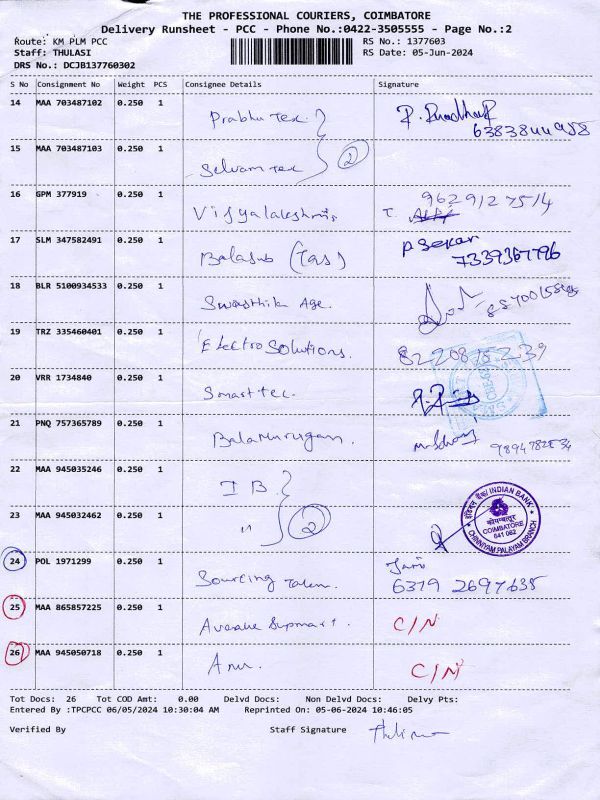 THE PROFESSIONAL COURIERS, COIMBATORE
Delivery Runsheet - PCC - Phone No.:0422-3505555 - Page No.:2
Route: KM PLM PCC RS No.: 1377603
Staff: THULASI RS Date: 05-Jun-2024
DRS No.: DCJB137760302
S No Consignment No Weight PCS Consignee Details Signature
14 MAA 703487102 0.250 1 Prabhu Tex. 6383844958
15 MAA 703487103 0.250 1 Selvam tex 2
16 GPM 377919 0.250 1 Vijyalakshmi 9629127514
17 SLM 347582491 0.250 1 Balasub (Tas) P Sekar 7339367796
18 BLR 5100934533 0.250 1 Swasthik Age.
19 TRZ 335460401 0.250 1 Electro Solutions.
20 VRR 1734840 0.250 1 Smart tec.
21 PNQ 757365789 0.250 1 Balamurugan.
22 MAA 945035246 0.250 1 I B.
23 MAA 945032462 0.250 1 " 2
INDIAN BANK
COIMBATORE
641 062
CHINNIYAM PALAYAM BRANCH
24 POL 1971299 0.250 1 Sourcing Talen. 6379 2697638
25 MAA 865857225 0.250 1 C/N
26 MAA 945050718 0.250 1 C/N
Tot Docs: 26 Tot COD Amt: 0.00 Delvd Docs: Non Delvd Docs: Delvy Pts:
Entered By :TPCPCC 06/05/2024 10:30:04 AM Reprinted On: 05-06-2024 10:46:05
Verified By Staff Signature